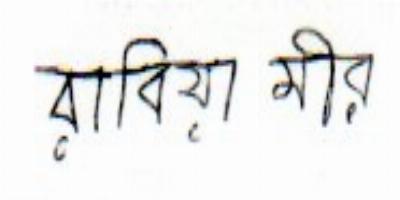 রাবিয়া মীর